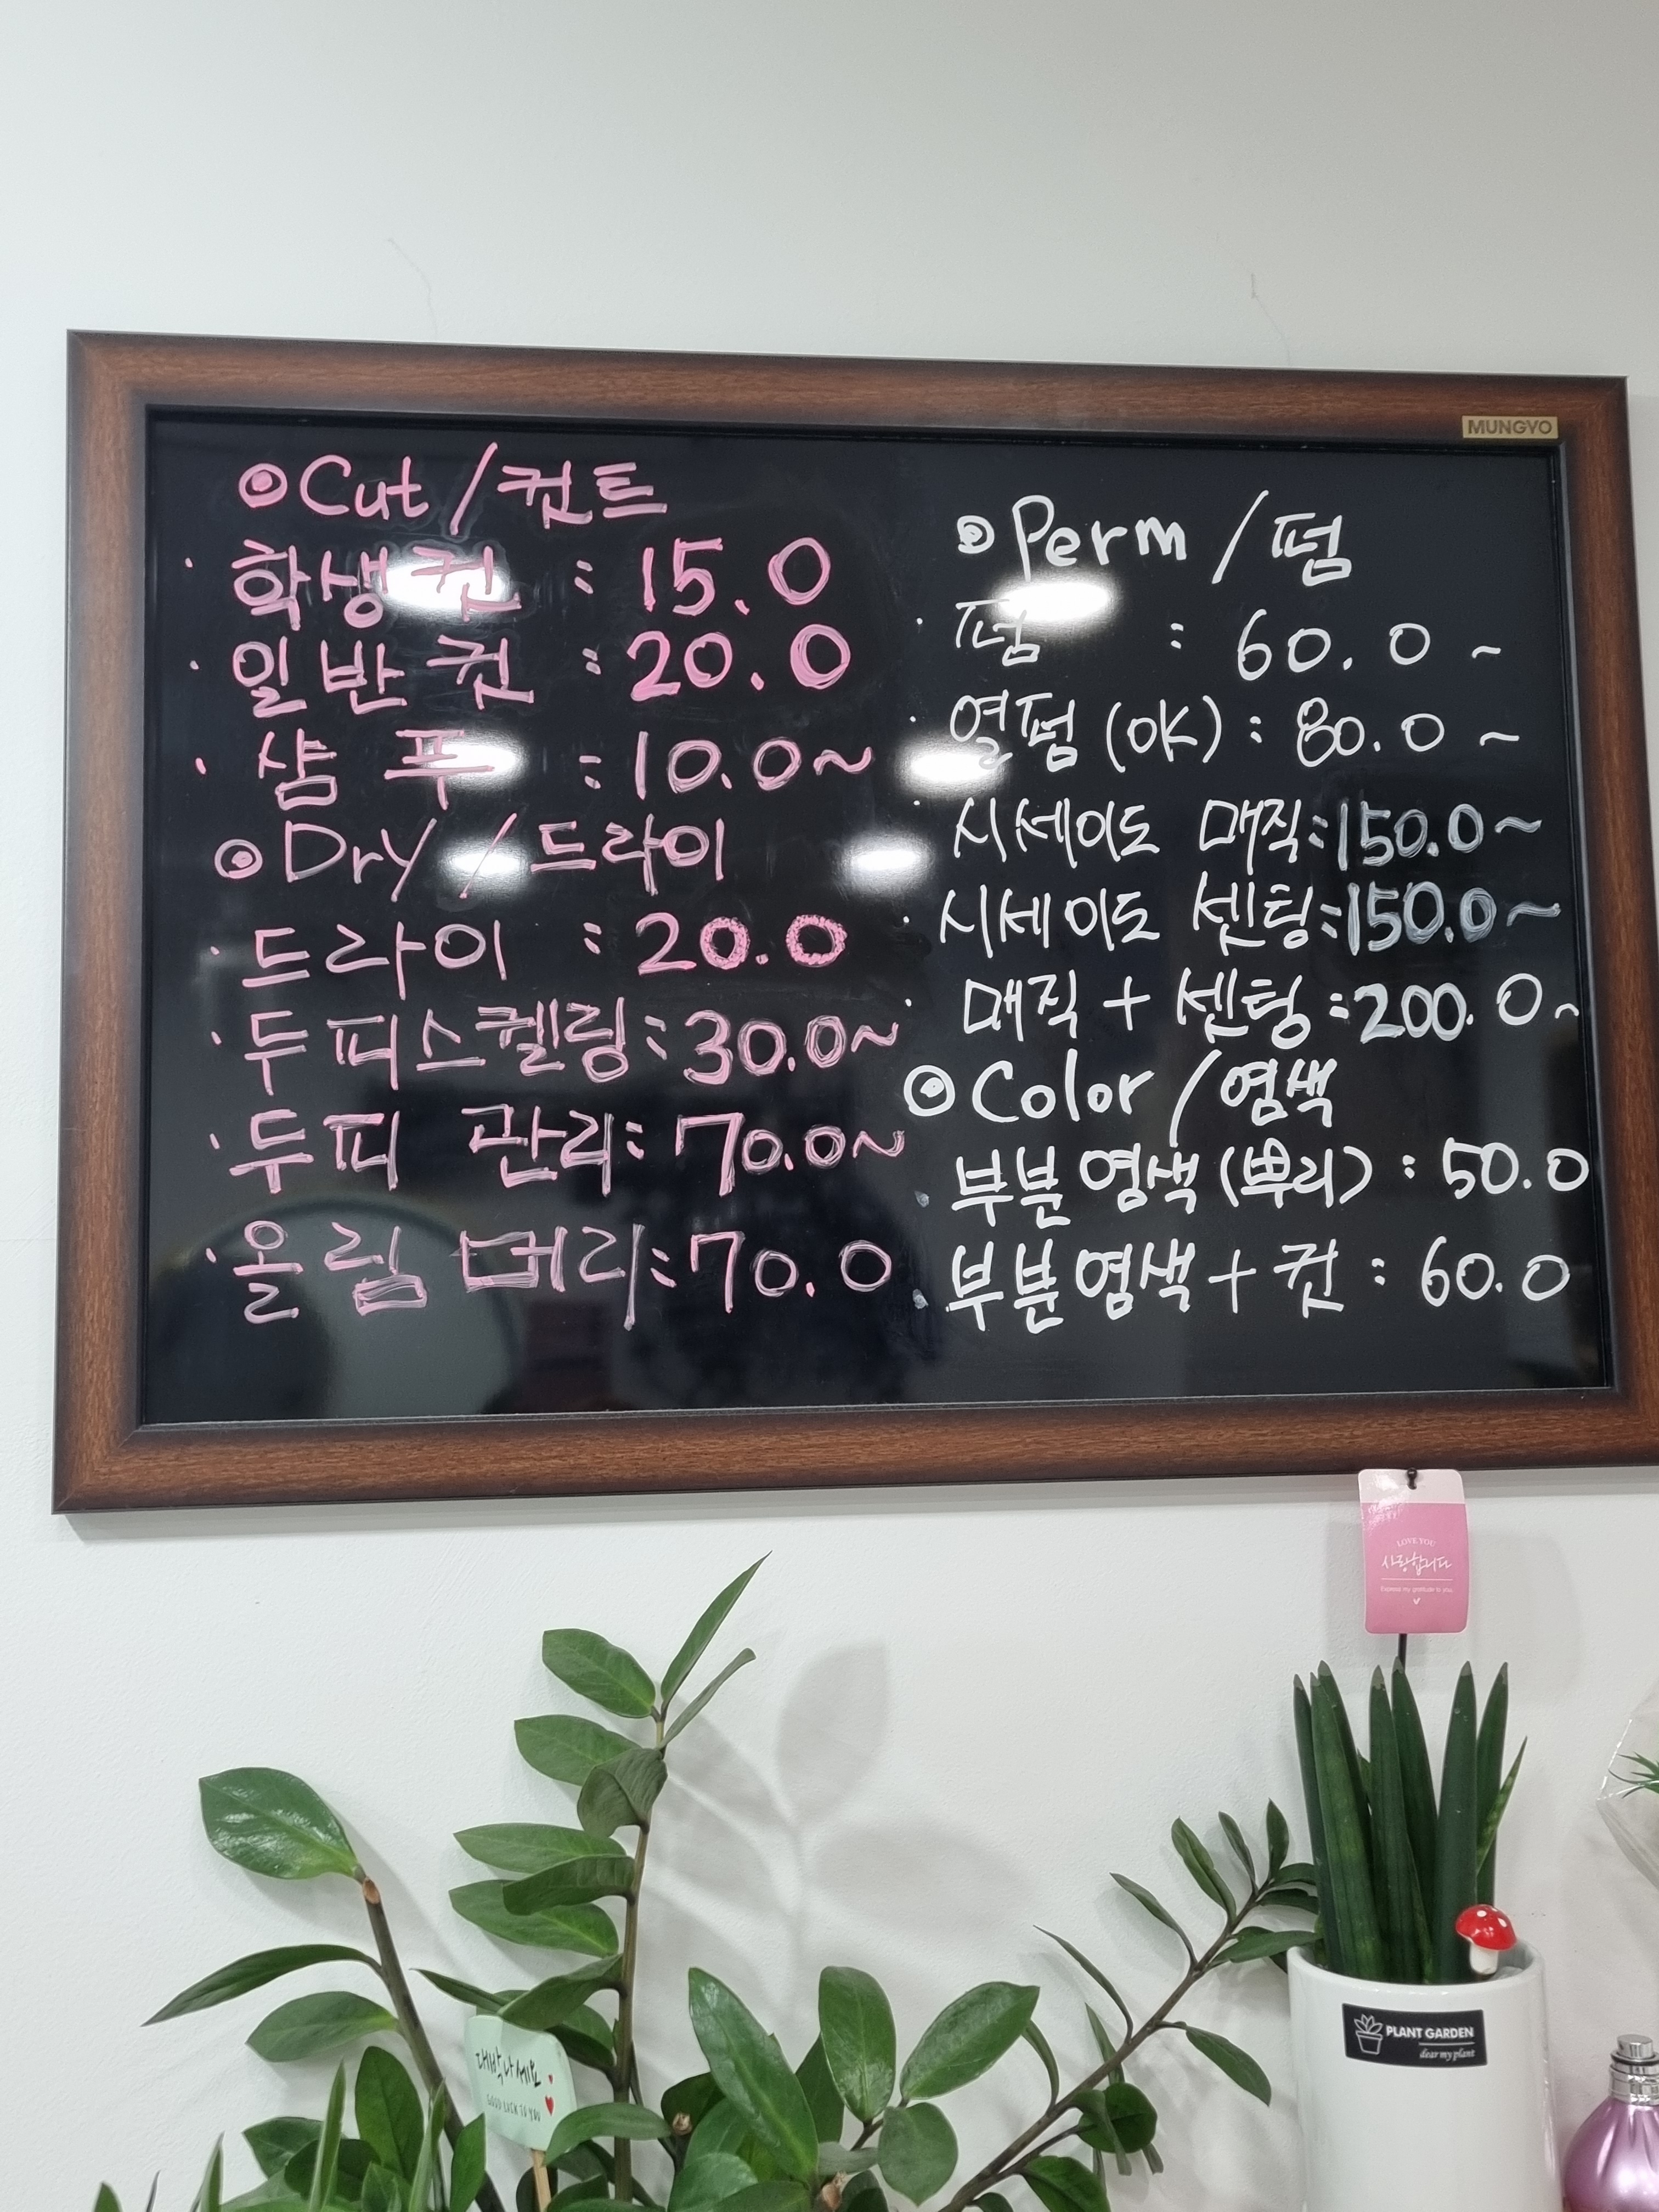 ⊙Cut/컷트
· 학생컷 : 15.0
· 일반컷 : 20.0
· 샴푸 : 10.0~
⊙Dry/드라이
· 드라이 : 20.0
· 두피스켈링 : 30.0~
· 두피 관리 : 70.0~
· 올림머리 : 70.0
MUNGYO
⊙Perm/펌
· 펌 : 60.0~
· 열펌(OK) : 80.0~
· 시세이도 매직 : 150.0~
· 시세이도 셋팅 : 150.0~
· 매직+셋팅 : 200.0~
⊙Color/염색
· 부분염색(뿌리) : 50.0
· 부분염색+컷 : 60.0
LOVE YOU
사랑합니다
Express my gratitude to you.
PLANT GARDEN
dear my plant
대박나세요
GOOD LUCK TO YOU